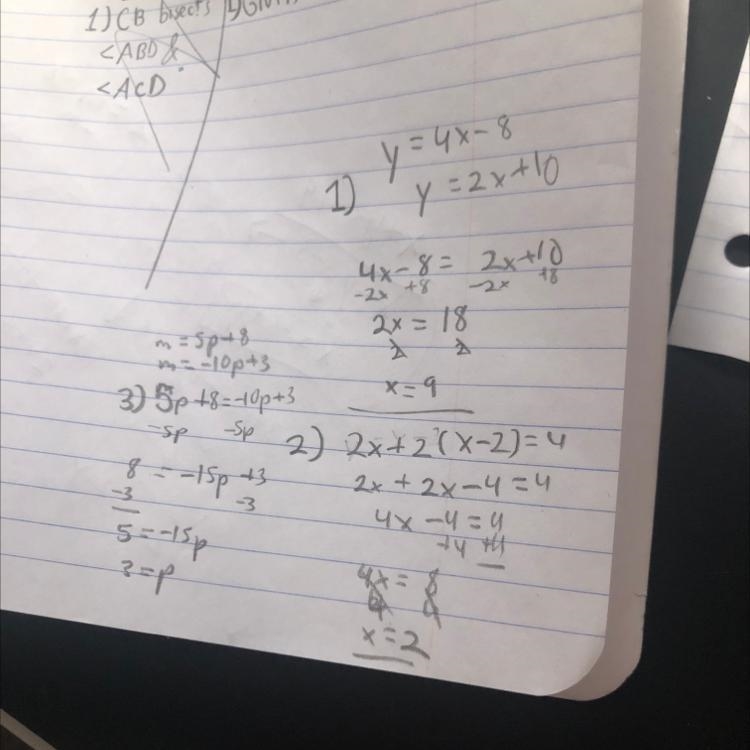 1) CB bisects
<ABD &
<ACD
y = 4x - 8
1) y = 2x + 10
4x - 8 = 2x + 10
-2x +8 -2x +8
2x = 18
2 2
x = 9
2) 2x + 2(x - 2) = 4
2x + 2x - 4 = 4
4x - 4 = 4
+4 +4
4x = 8
4 4
x = 2
m = 5p + 8
m = -10p + 3
3) 5p + 8 = -10p + 3
-5p -5p
8 = -15p + 3
-3 -3
5 = -15p
3 = p